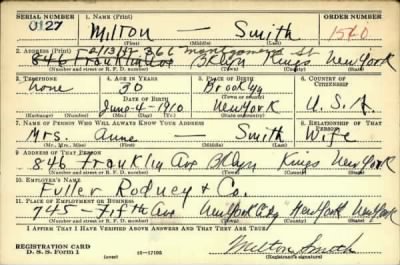 SERIAL NUMBER 1. NAME (Print) ORDER NUMBER
0127 Milton — Smith 1540
(First) (Middle) (Last)
2. ADDRESS (Print) 2/13/47 366 Montgomery St
846 Franklin Ave Bklyn Kings New York
(Number and street or R. F. D. number) (Town) (County) (State)
3. TELEPHONE 4. AGE IN YEARS 5. PLACE OF BIRTH 6. COUNTRY OF CITIZENSHIP
none 30 Brooklyn
DATE OF BIRTH (Town or county)
June-4-1910 New York U.S.A.
(Exchange) (Number) (Mo.) (Day) (Yr.) (State or country)
7. NAME OF PERSON WHO WILL ALWAYS KNOW YOUR ADDRESS 8. RELATIONSHIP OF THAT PERSON
Mrs. Anne — Smith Wife
(Mr., Mrs., Miss) (First) (Middle) (Last)
9. ADDRESS OF THAT PERSON
846 Franklin Ave Bklyn Kings New York
(Number and street or R. F. D. number) (Town) (County) (State)
10. EMPLOYER'S NAME
Fuller Rodney & Co.
11. PLACE OF EMPLOYMENT OR BUSINESS
745 - Fifth Ave New York City New York New York
(Number and street or R. F. D. number) (Town) (County) (State)
I AFFIRM THAT I HAVE VERIFIED ABOVE ANSWERS AND THAT THEY ARE TRUE.
REGISTRATION CARD
D. S. S. Form 1 (over) 16—17105 Milton Smith
(Registrant's signature)